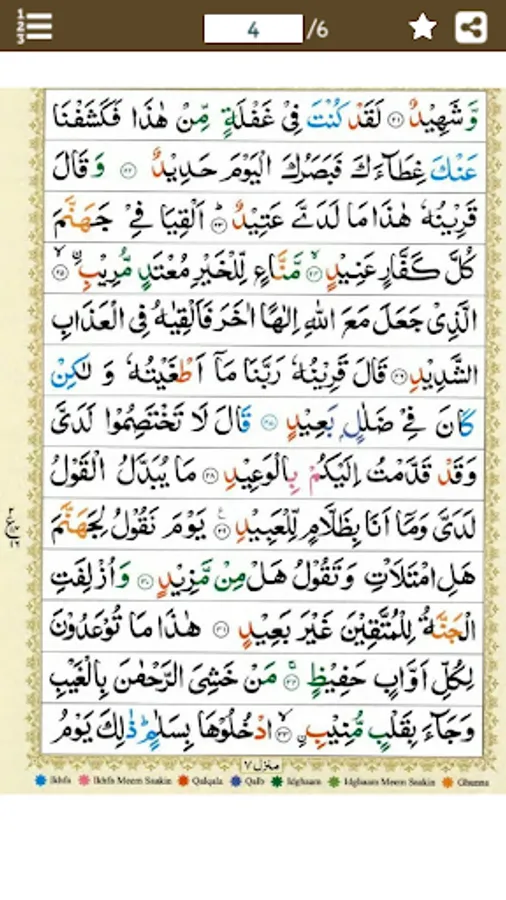 4 /6
وَّشَهِيْدٌ ۟۲۱ لَقَدْ كُنْتَ فِيْ غَفْلَةٍ مِّنْ هٰذَا فَكَشَفْنَا
عَنْكَ غِطَآءَكَ فَبَصَرُكَ الْيَوْمَ حَدِيْدٌ ۟۲۲ وَقَالَ
قَرِيْنُهٗ هٰذَا مَا لَدَيَّ عَتِيْدٌ ؕ۟۲۳ اَلْقِيَا فِيْ جَهَنَّمَ
كُلَّ كَفَّارٍ عَنِيْدٍ ۙ۟۲۴ مَّنَّاعٍ لِّلْخَيْرِ مُعْتَدٍ مُّرِيْبِ ۙ۟۲۵
الَّذِيْ جَعَلَ مَعَ اللّٰهِ اِلٰهًا اٰخَرَ فَاَلْقِيٰهُ فِي الْعَذَابِ
الشَّدِيْدِ ۟۲۶ قَالَ قَرِيْنُهٗ رَبَّنَا مَاۤ اَطْغَيْتُهٗ وَ لٰكِنْ
كَانَ فِيْ ضَلٰلٍۭ بَعِيْدٍ ۟۲۷ قَالَ لَا تَخْتَصِمُوْا لَدَيَّ
وَقَدْ قَدَّمْتُ اِلَيْكُمْ بِالْوَعِيْدِ ۟۲۸ مَا يُبَدَّلُ الْقَوْلُ
لَدَيَّ وَمَاۤ اَنَا بِظَلَّامٍ لِّلْعَبِيْدِ ۟۲۹ يَوْمَ نَقُوْلُ لِجَهَنَّمَ
هَلِ امْتَلَاْتِ وَتَقُوْلُ هَلْ مِنْ مَّزِيْدٍ ۟۳۰ وَاُزْلِفَتِ
الْجَنَّةُ لِلْمُتَّقِيْنَ غَيْرَ بَعِيْدٍ ۟۳۱ هٰذَا مَا تُوْعَدُوْنَ
لِكُلِّ اَوَّابٍ حَفِيْظٍ ۚ۟۳۲ مَنْ خَشِيَ الرَّحْمٰنَ بِالْغَيْبِ
وَجَآءَ بِقَلْبٍ مُّنِيْبِ ۙ۟۳۳ ادْخُلُوْهَا بِسَلٰمٍ ؕ ذٰلِكَ يَوْمُ
منزل ۷
Ikhfa Ikhfa Meem Saakin Qalqala Qalb Idghaam Idghaam Meem Saakin Ghunna